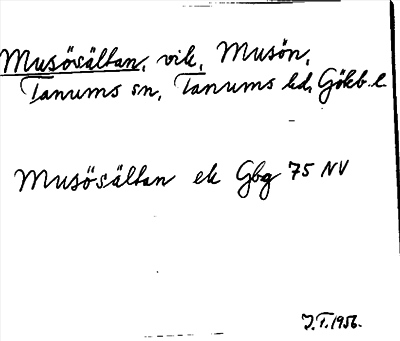 Musösältan, vik, Musön,
Tanums sn, Tanums hd, Gökb. l.
Musösältan ek Gbg 75 NV
J.F. 1956.